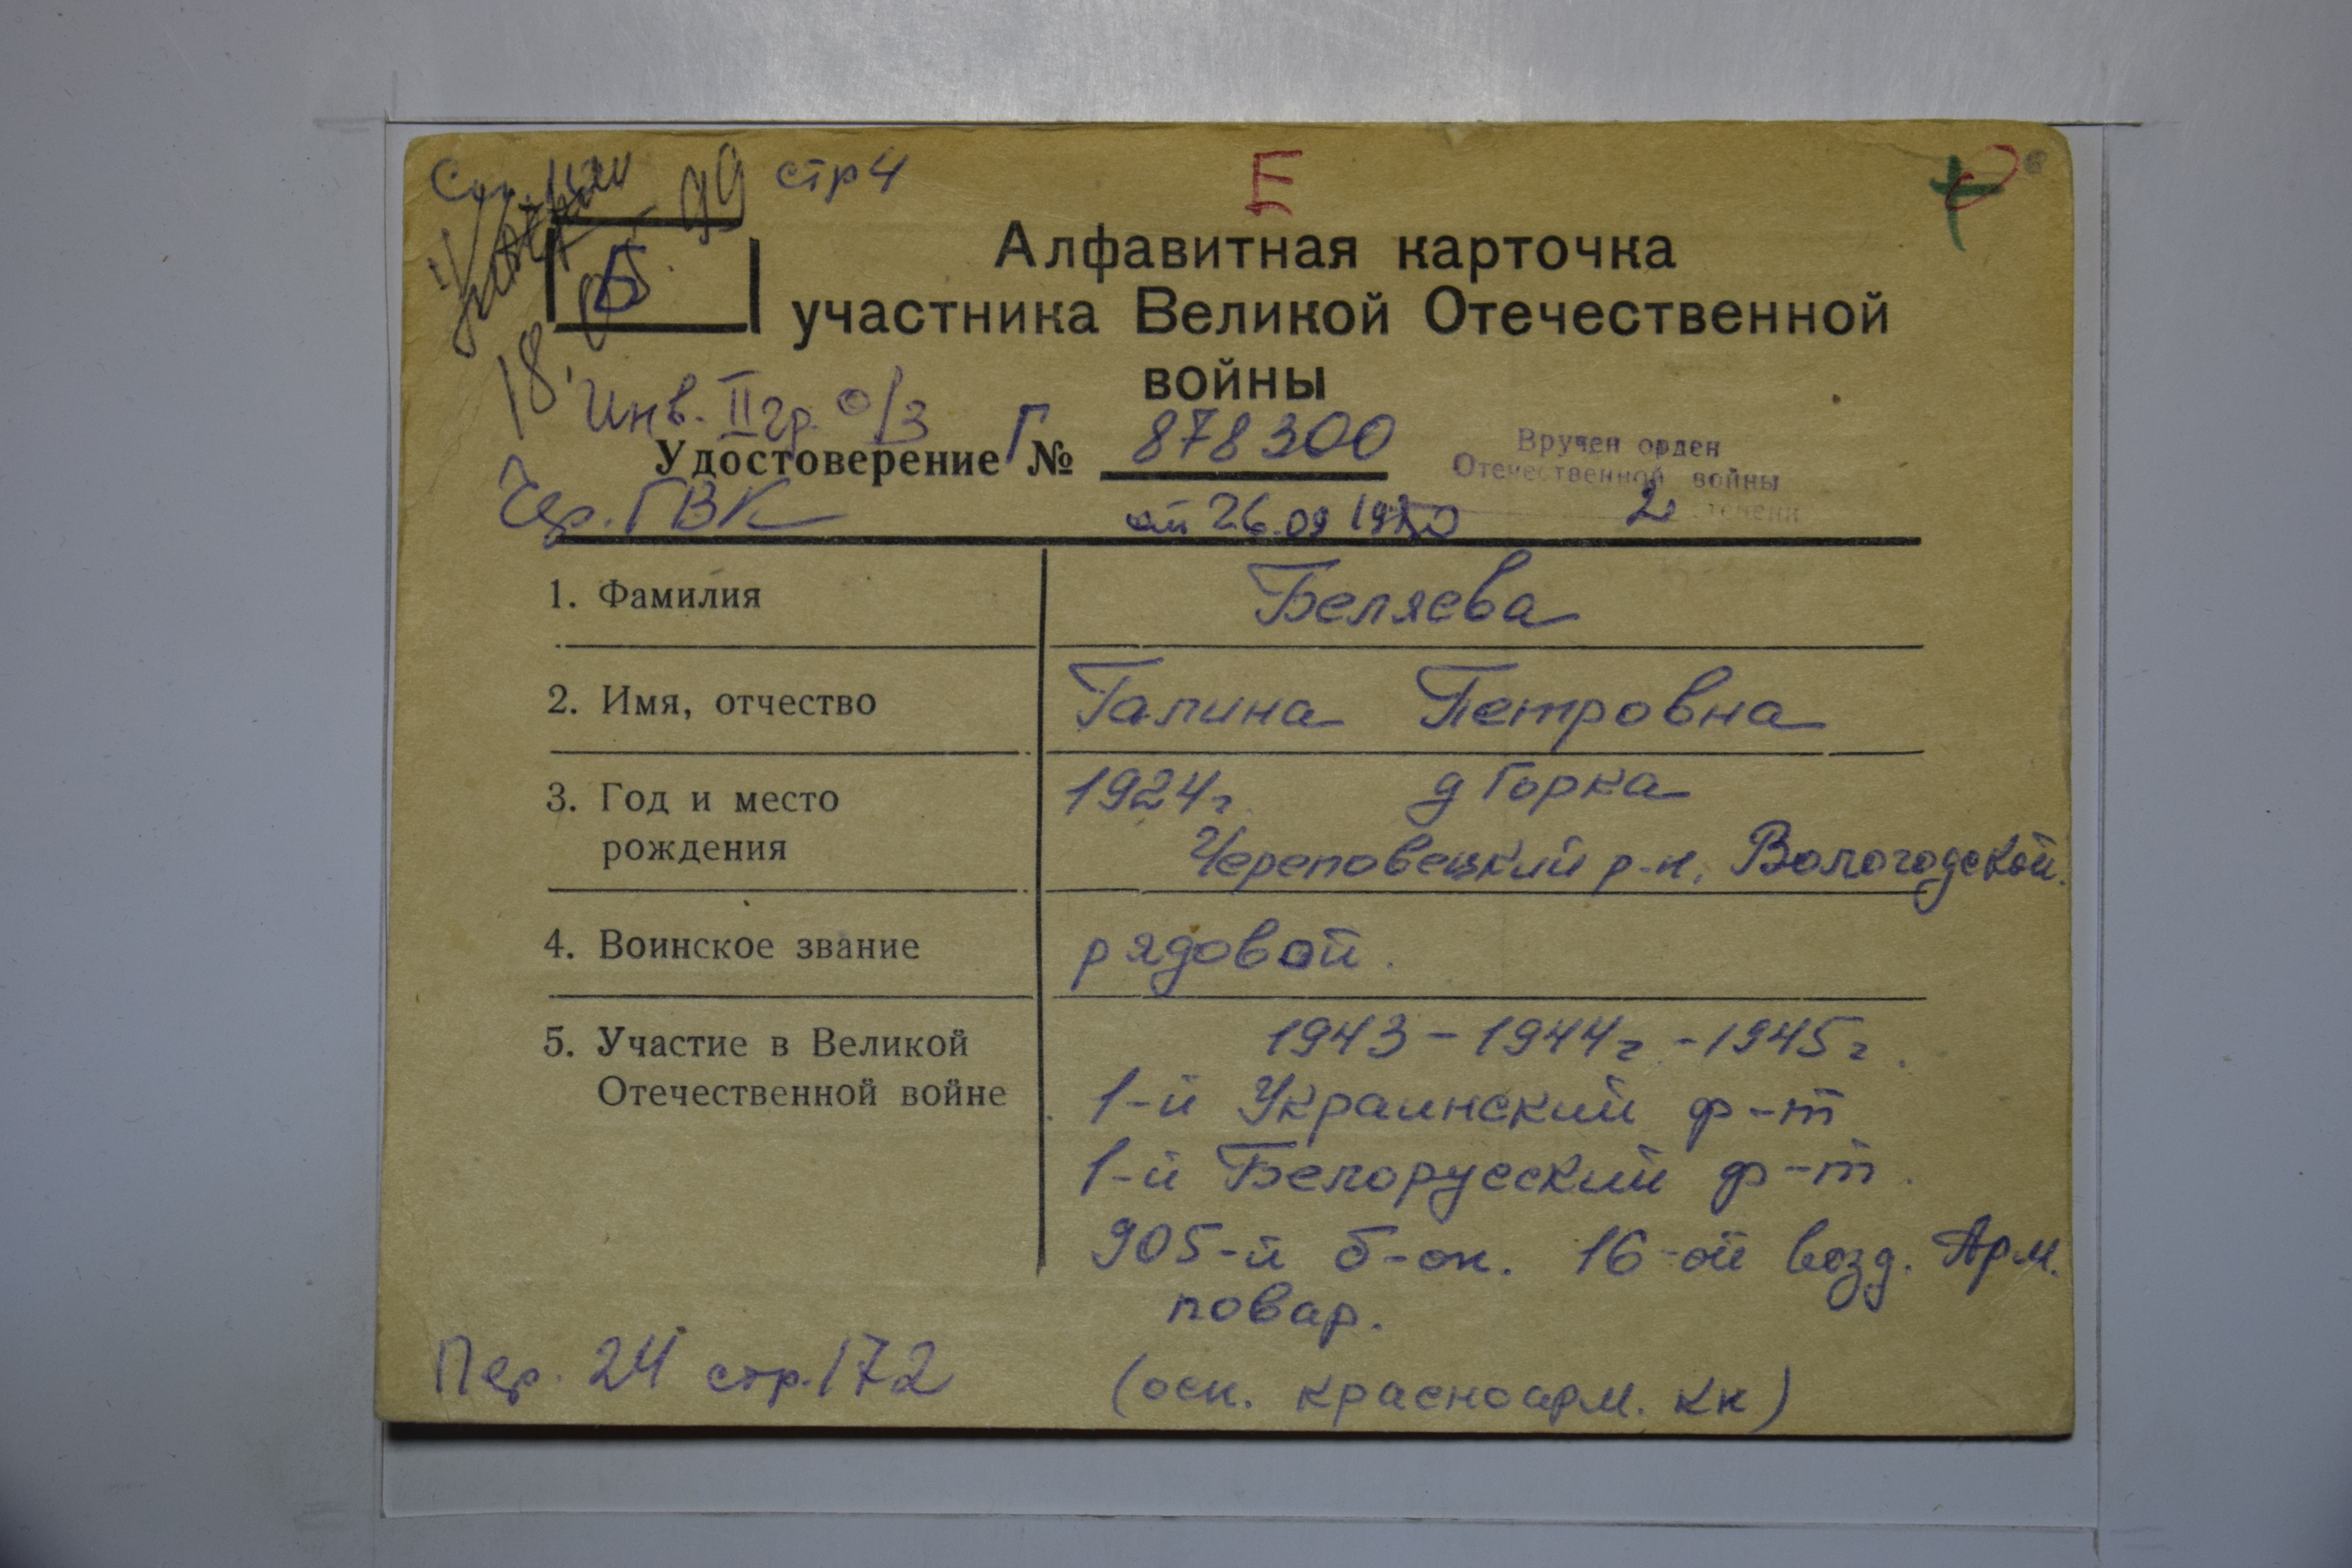 стр 4
Е
99
Б
18.
Алфавитная карточка
участника Великой Отечественной
войны
Инв. II гр. о/з
Удостоверение Г № 878300
Чер. ГВК
от 26.09
Вручен орден
Отечественной войны
2 степени
1. Фамилия Беляева
2. Имя, отчество Галина Петровна
3. Год и место 1924г. д Горка
рождения Череповецкий р-н, Вологодской.
4. Воинское звание рядовой.
5. Участие в Великой 1943-1944г.-1945г.
Отечественной войне 1-й Украинский ф-т
1-й Белорусский ф-т.
905-й б-он. 16-ой возд. Арм.
повар.
Пер. 24 стр. 172
(осн. красноарм. кн)